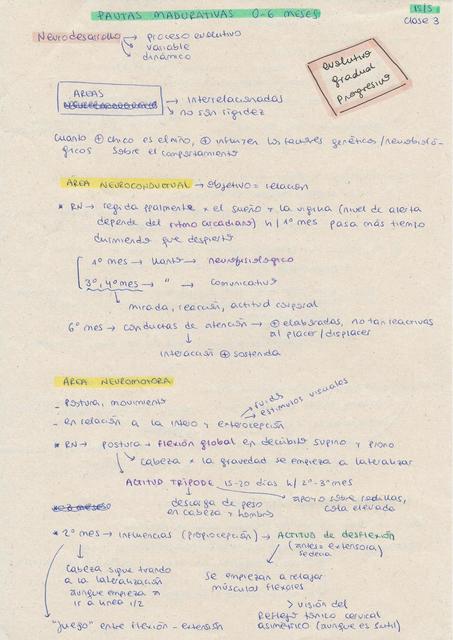 PAUTAS MADURATIVAS 0-6 MESES
15/5
clase 3
Neurodesarrollo → proceso evolutivo
variable
dinámico
evolutivo
gradual
progresivo
ÁREAS
→ interrelacionadas
→ no son rígidas
Cuanto ⊕ chico es el niño, ⊕ influyen los factores genéticos/neurobioló-
gicos sobre el comportamiento
ÁREA NEUROCONDUCTUAL → objetivo = relación
* RN → regida ppalmente x el sueño y la vigilia (nivel de alerta
depende del ritmo arcadiano) h/ 1º mes pasa más tiempo
durmiendo que despierto
1º mes → llanto → neurofisiológico
3º, 4º mes → " → comunicativo
mirada, reacción, actitud corporal
6º mes → conductas de atención → ⊕ elaboradas, no tan reactivas
al placer/displacer
interacción ⊕ sostenida
ÁREA NEUROMOTORA
- Postura, movimiento
- en relación a la intero y exterocepción
→ ruido
→ estímulos visuales
* RN → postura → flexión global en decúbito supino y prono
cabeza x la gravedad se empieza a lateralizar
ACTITUD TRÍPODE 15-20 días h/ 2º-3º mes
descarga de peso
en cabeza y hombros
apoyo sobre rodillas,
cola elevada
* 2º mes → influencias (propiocepción) → ACTITUD de DESFLEXIÓN
(antes extensora)
cabeza sigue tirando
a la lateralización
aunque empieza a
ir a línea 1/2
se empiezan a relajar
músculos flexores
> visión del
Reflejo tónico cervical
asimétrico (aunque es sutil)
"Juego" entre flexión - extensión